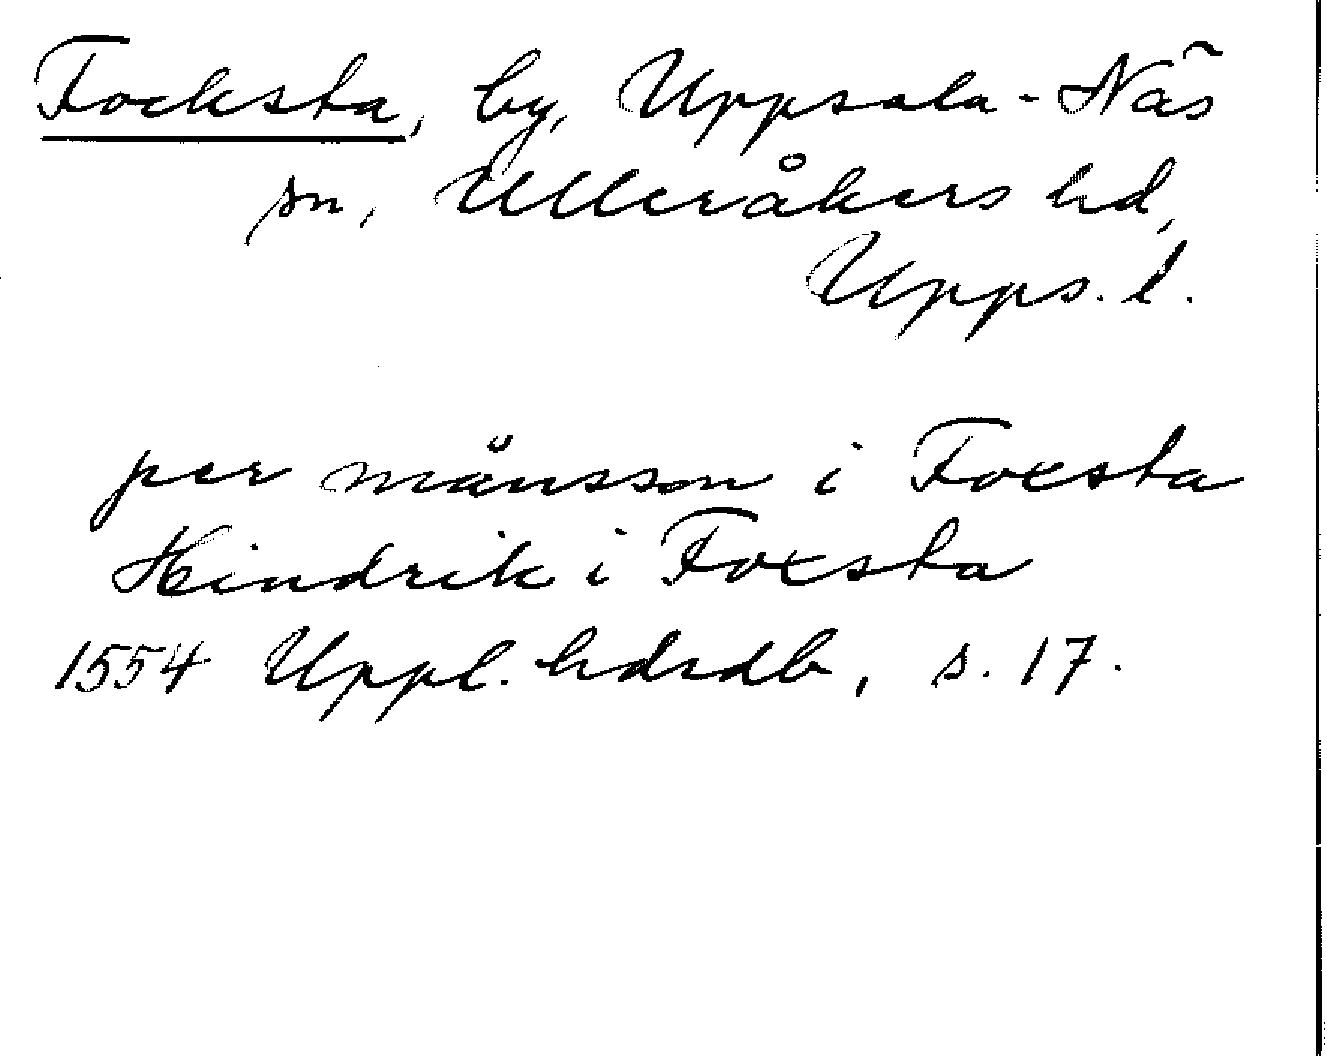 Focksta, by, Uppsala-Näs
sn, Ulleråkers hd,
Upps. l.
per månsson i Foxsta
Hindrik i Foxsta
1554 Uppl. hdrdb, s. 17.